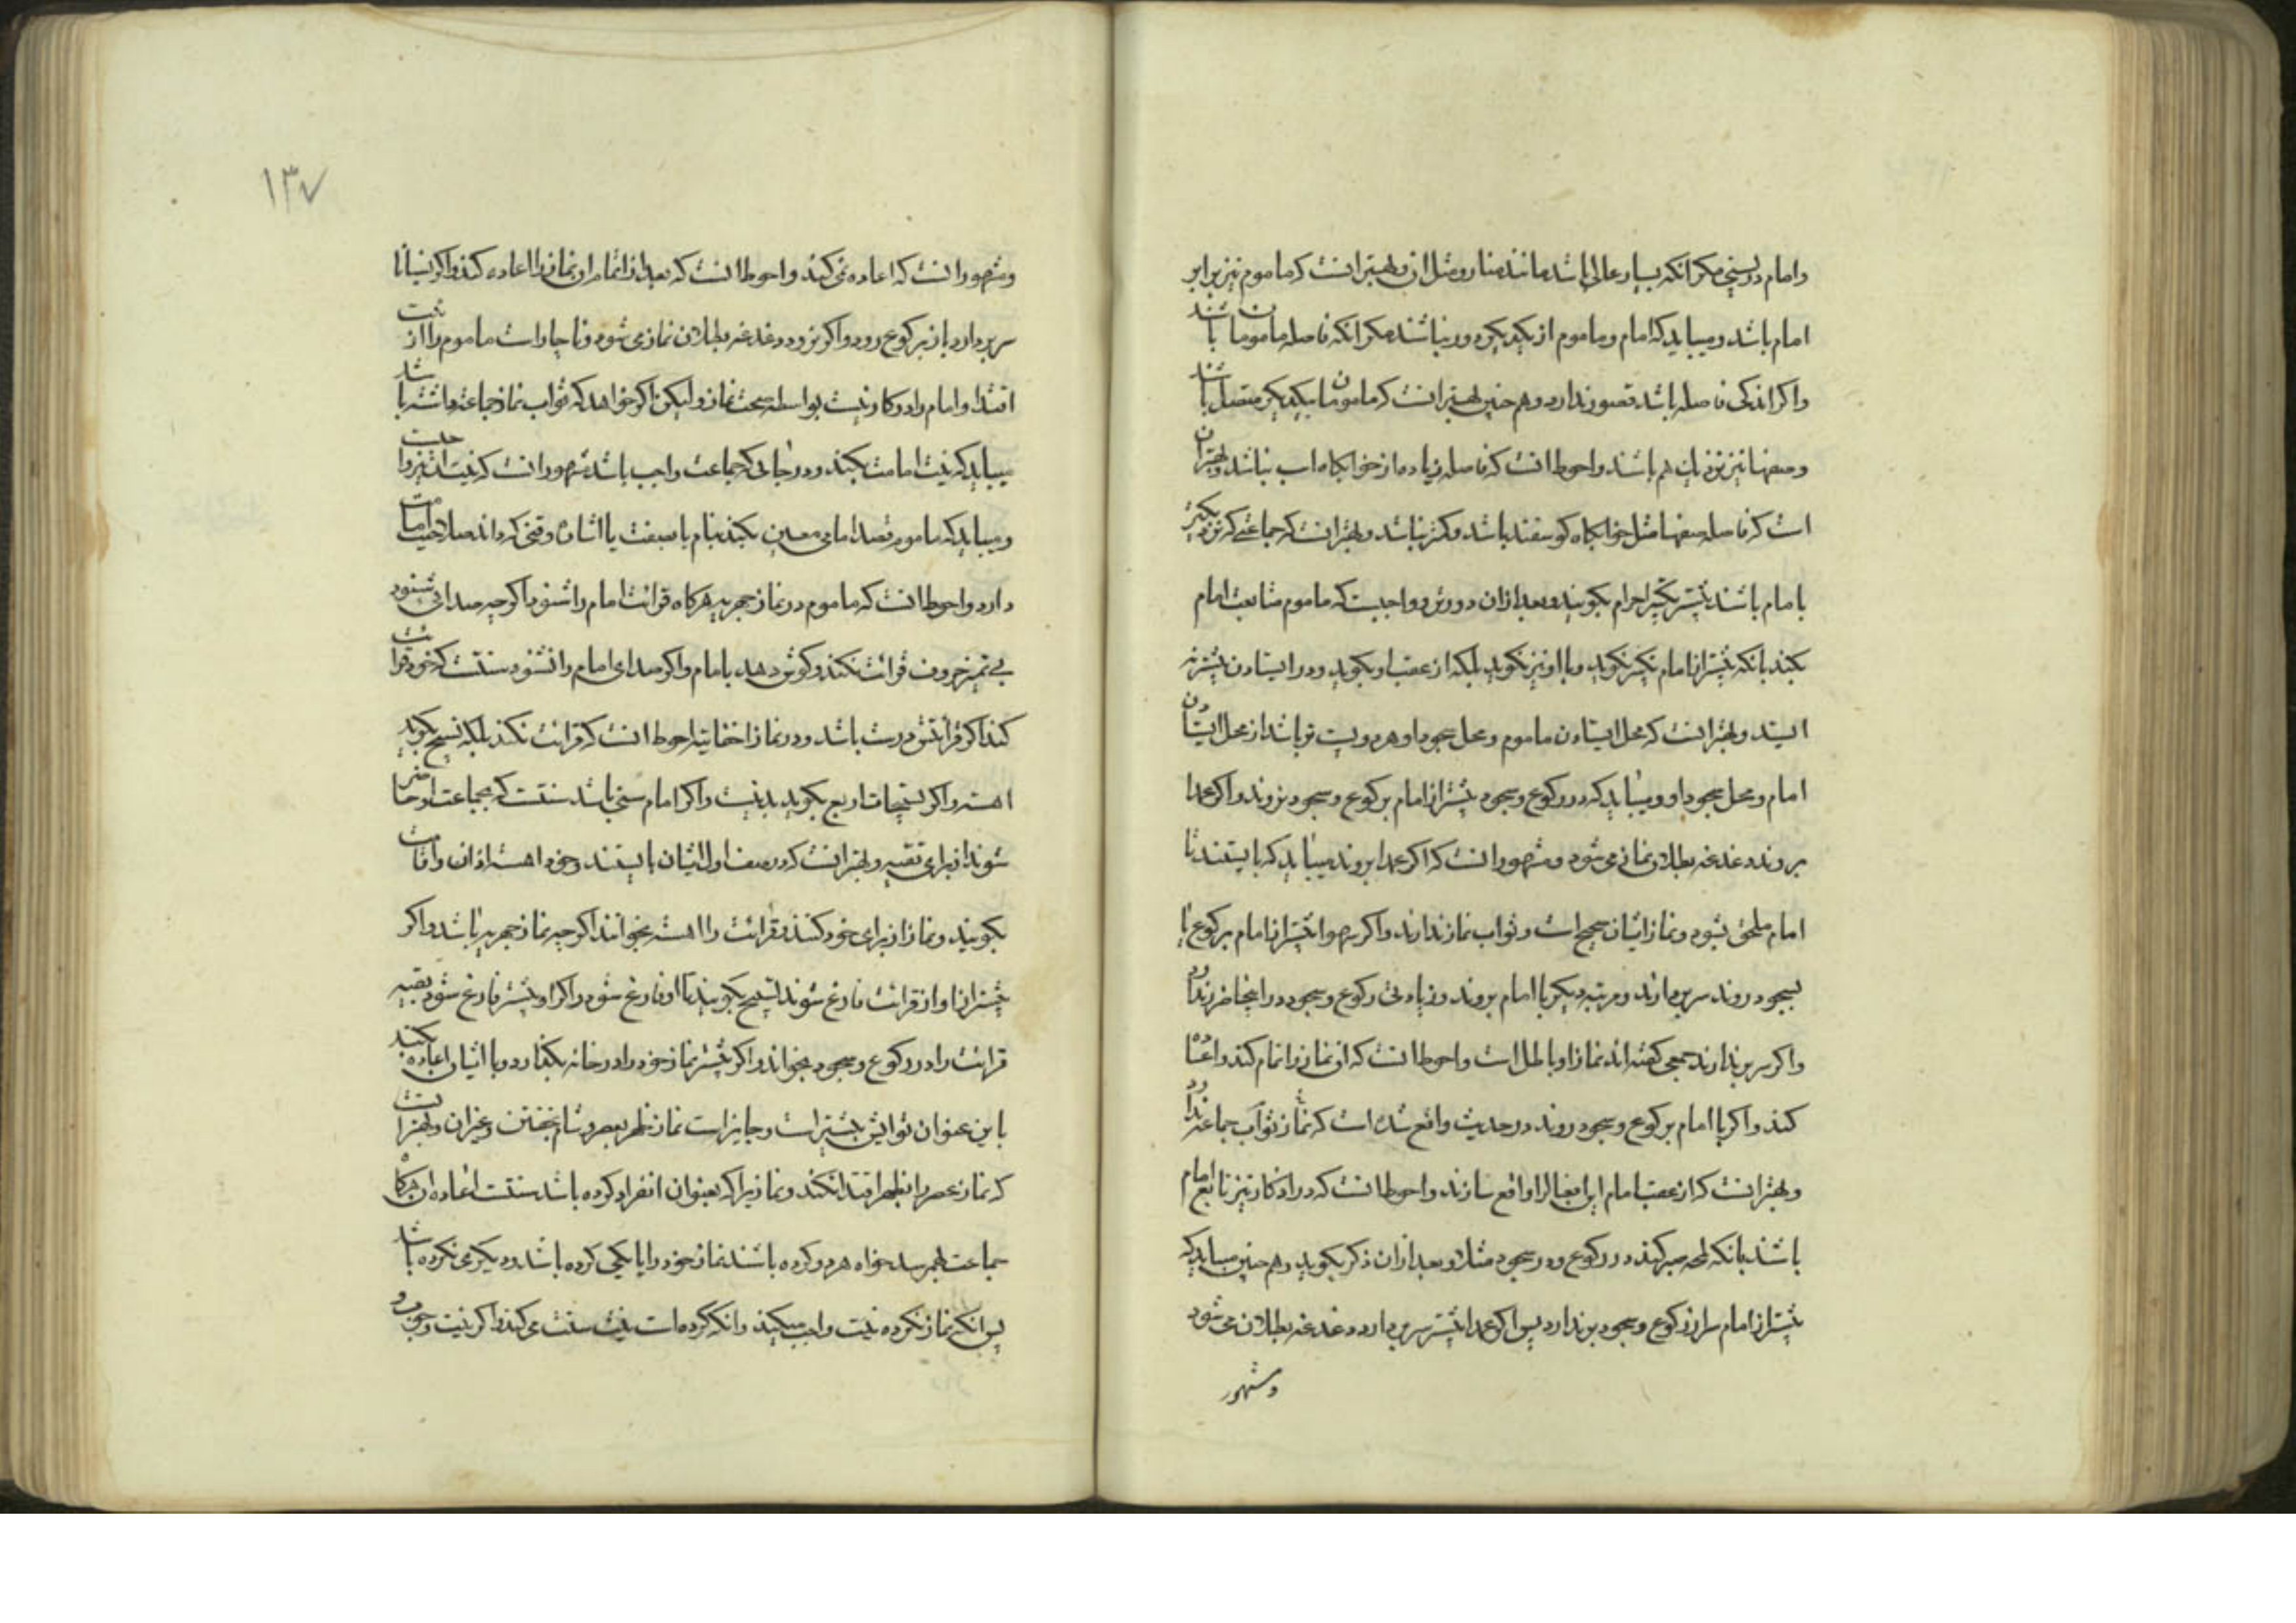 وامام در پستی مکر انکه بسیار عالی باشد مانند مناره ومثل ان وبهتر انست که ماموم نیز برابر
امام باشد ومیباید که امام وماموم از یکدیکر دور نباشند مکر انکه فاصله مامومان باشند
واکر اندکی فاصله باشد قصور ندارد وهم چنین بهتر انست که مامومان بیکدیکر متصل باشند
وصفها نیز نزدیک هم باشند واحوط انست که فاصله زیاده از خوابکاه اسب نباشد وبهتر ان
است که فاصله صفها مثل خوابکاه کوسفند باشد وکمتر نباشد وبهتر انست که جماعتی که نزدیکترند
بامام باشند پیشتر تکبیر احرام بکویند وبعد از ان دورتر و واجبست که ماموم متابعت امام
بکند بانکه پیشتر از امام تکبیر نکوید وبا او نیز نکوید بلکه از عقب او بکوید ودر ایستادن پیشتر نه
ایستد وبهتر انست که محل ایستادن ماموم ومحل سجود او هر دو پست تر باشد از محل ایستادن
امام ومحل سجود او ومیباید که در رکوع وسجود پیشتر از امام برکوع وسجود نروند واکر عمدا
بروند دغدغه بطلان نماز می شود ومشهور انست که اکر عمدا بروند میباید که بایستند تا
امام ملحق شود ونماز ایشان صحیح است وثواب نماز ندارند واکر سهوا پیشتر از امام برکوع یا
بسجود روند سر بردارند ومرتبه دیکر با امام بروند وزیادتی رکوع وسجود در اینجا ضرر ندارد
واکر سر بر ندارند جمعی کفته اند نماز او باطل است واحوط انست که ان نماز را تمام کند واعاده
کند واکر با امام برکوع وسجود روند در حدیث واقع شده است که نمازش ثواب جماعت ندارد
وبهتر انست که از عقب امام این افعال را واقع سازند واحوط انست که در اذکار نیز تابع امام
باشند بانکه لمحه صبر کند در رکوع ودر سجود مثلا وبعد از ان ذکر بکوید وهم چنین میباید که
پیشتر از امام سر از رکوع وسجود بر ندارد پس اکر عمدا پیشتر سر بردارد دغدغه بطلان می شود
ومشهور
۱۳۷
ومشهور انست که اعاده نمی کند واحوط انست که بعد از اتمام ان نماز را اعاده کند واکر نسیانا
سر بردارد باز برکوع رود واکر نرود دغدغه بطلان نماز می شود وناچار است ماموم را از نیت
اقتدا وامام را در کار نیست بواسطه صحت نماز ولیکن اکر خواهد که ثواب نماز جماعت داشته باشد
میباید که نیت امامت بکند ودر جائی که جماعت واجب باشد مشهور انست که نیت نیز واجبست
ومیباید که ماموم قصد امامی معین بکند بنام یا صفت یا اشاره وقتی که داند صلاحیت امامت
دارد واحوط انست که ماموم در نماز جهریه هرکاه قرائت امام را شنود اکرچه صدائی شنود
بی تمیز حروف قرائت نکند وکوش دهد بامام واکر صدای امام را نشنود سنتست که خود قرائت
کند اکر قرائتش درست باشد ودر نماز اخفاتیه احوط انست که قرائت نکند بلکه تسبیح بکوید
اهسته واکر تسبیحات اربع بکوید بد نیست واکر امام سنی باشد سنتست که بجماعت او حاضر
شوند از برای تقیه وبهتر انست که در صف اول ایشان بایستند وخود اهسته اذان واقامت
بکویند ونماز از برای خود کنند وقرائت را اهسته بخوانند اکرچه نماز جهریه باشد واکر
پیشتر از او از قرائت فارغ شوند تسبیح بکویند تا او فارغ شود واکر او پیشتر فارغ شود بقیه
قرائت را در رکوع وسجود بخواند واکر پیشتر نماز خود را در خانه بکذارد وبا ایشان اعاده بکند
باین عنوان ثوابش بیشتر است وجایز است نماز ظهر بعصر وشام بخفتن وغیر ان وبهتر انست
که نماز عصر را بظهر اقتدا نکند ونمازیرا که بعنوان انفراد کرده باشد سنتست اعاده ان هرکاه
جماعت بهمرسد خواه هر دو کرده باشند نماز خود را یا یکی کرده باشد ودیکری نکرده باشد
پس انکه نماز نکرده نیت واجب میکند وانکه کرده است نیت سنت می کند واکر نیت وجوب